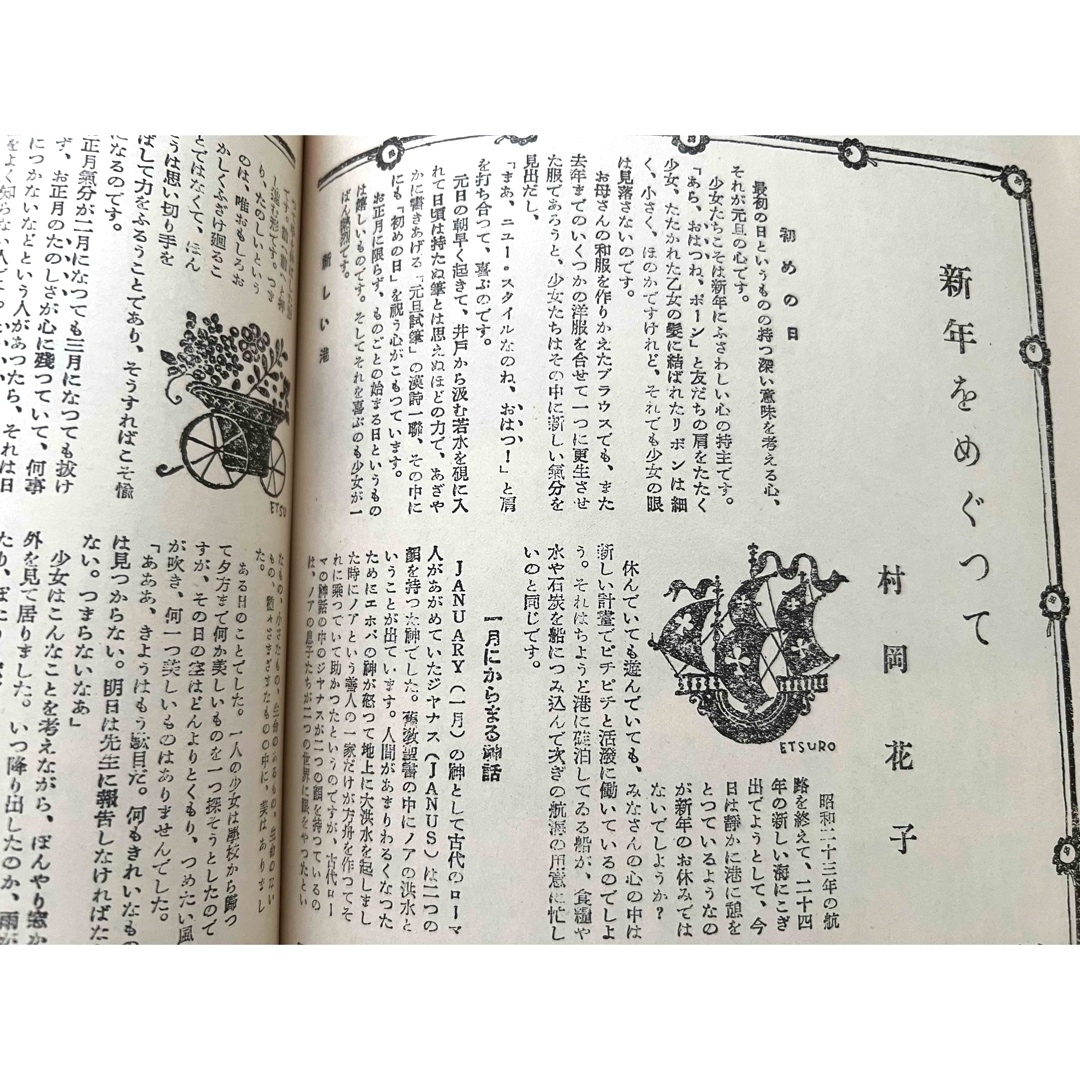 新年をめぐつて
村岡花子
初めの日
最初の日というものの持つ深い意味を考える心、
それが元旦の心です。
少女たちこそは新年にふさわしい心の持主です。
「あら、おはつね、ポーン」と友だちの肩をたたく
少女、たたかれた乙女の髪に結ばれたリボンは細
く、小さく、ほのかですけれど、それでも少女の眼
は見落さないのです。
お母さんの和服を作りかえたブラウスでも、また
去年までのいくつかの洋服を合せて一つに更生させ
た服であろうと、少女たちはその中に新しい氣分を
見出だし、
「まあ、ニュー・スタイルなのね、おはつ!」と肩
を打ち合つて、喜ぶのです。
元日の朝早く起きて、井戸から汲む若水を硯に入
れて日頃は持たぬ筆とは思えぬほどの力で、あざや
かに書きあげる「元旦試筆」の漢詩一聯、その中に
にも「初めの日」を祝う心がこもつています。
お正月に限らず、ものごとの始まる日というもの
は嬉しいものです。そしてそれを喜ぶのも少女が一
ばん
です。
新しい港
昭和二十三年の航
路を終えて、二十四
年の新しい海にこぎ
出でようとして、今
日は靜かに港に憩を
とつているようなの
が新年のお休みでは
ないでしようか?
休んでいても遊んでいても、みなさんの心の中は
新しい計畫でピチピチと活潑に働いているのでしよ
う。それはちようど港に碇泊してゐる船が、食糧や
水や石炭を船につみ込んで次ぎの航海の用意に忙し
いのと同じです。
一月にからまる神話
JANUARY(一月)の神として古代のローマ
人があがめていたジヤナス(JANUS)は二つの
顔を持つた神でした。舊敎聖書の中にノアの洪水と
いうことが出ています。人間があまりわるくなつた
ためにエホバの神が怒つて地上に大洪水を起しまし
た時にノアという善人の一家だけが方舟を作つてそ
れに乘つていて助かつたというのですが、古代ロー
マの神話の中のジヤナスが二つの顔を持つているの
は、ノアの息子たちが二つの世界に眼をやつたとい
ETSURO
り、たのしいという
のは、唯おもしろお
かしくふざけ廻るこ
とではなくて、ほん
とうは思い切り手を
ばして力をふるうことであり、そうすればこそ愉
になるのです。
正月氣分が二月になつても三月になつても拔け
ず、お正月のたのしさが心に殘つていて、何事
につかないなどという人があつたら、それは日
ETSU
なもの、小さなもの、生命のあるもの、生命のない
もの、種々さまざまなものの中に、美はありまし
た。
ある日のことでした。一人の少女は學校から歸つ
て夕方まで何か美しいものを一つ探そうとしたので
すが、その日の空はどんよりとくもり、つめたい風
が吹き、何一つ美しいものはありませんでした。
「あああ、きようはもう駄目だ。何もきれいなもの
は見つからない。明日は先生に報告しなければな
ない。つまらないなあ」
少女はこんなことを考えながら、ぼんやり窓か
外を見て居りました。いつ降り出したのか、雨が